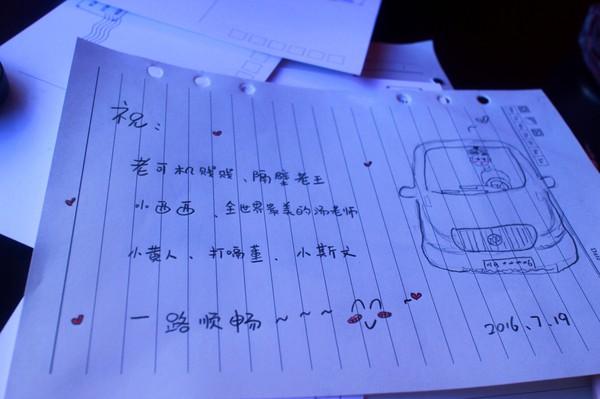 祝：
老司机贱贱、隔壁老王
小西西、全世界最美的汤老师
小黄人、打嗝董、小斯文
一路顺畅～～～
2016.7.19